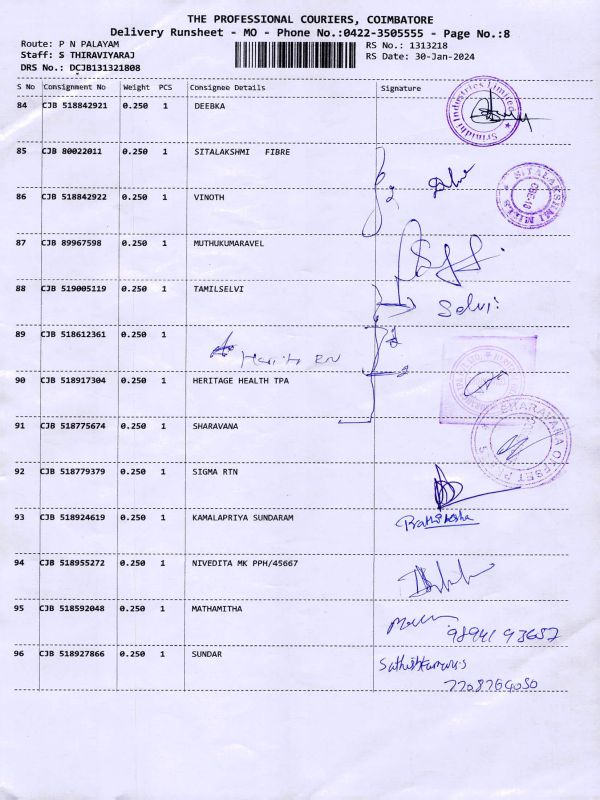 THE PROFESSIONAL COURIERS, COIMBATORE
Delivery Runsheet - MO - Phone No.:0422-3505555 - Page No.:8
Route: P N PALAYAM RS No.: 1313218
Staff: S THIRAVIYARAJ RS Date: 30-Jan-2024
DRS No.: DCJB131321808
S No Consignment No Weight PCS Consignee Details Signature
84 CJB 518842921 0.250 1 DEEBKA
Srinidhi Industries Limited
85 CJB 80022011 0.250 1 SITALAKSHMI FIBRE
SITALAKSHMI MILLS
86 CJB 518842922 0.250 1 VINOTH
87 CJB 89967598 0.250 1 MUTHUKUMARAVEL
88 CJB 519005119 0.250 1 TAMILSELVI
Selvi
89 CJB 518612361 0.250 1
90 CJB 518917304 0.250 1 HERITAGE HEALTH TPA
91 CJB 518775674 0.250 1 SHARAVANA
SHARAVANA OFFSET
92 CJB 518779379 0.250 1 SIGMA RTN
93 CJB 518924619 0.250 1 KAMALAPRIYA SUNDARAM
94 CJB 518955272 0.250 1 NIVEDITA MK PPH/45667
95 CJB 518592048 0.250 1 MATHAMITHA
96 CJB 518927866 0.250 1 SUNDAR
Sathishkumar.S